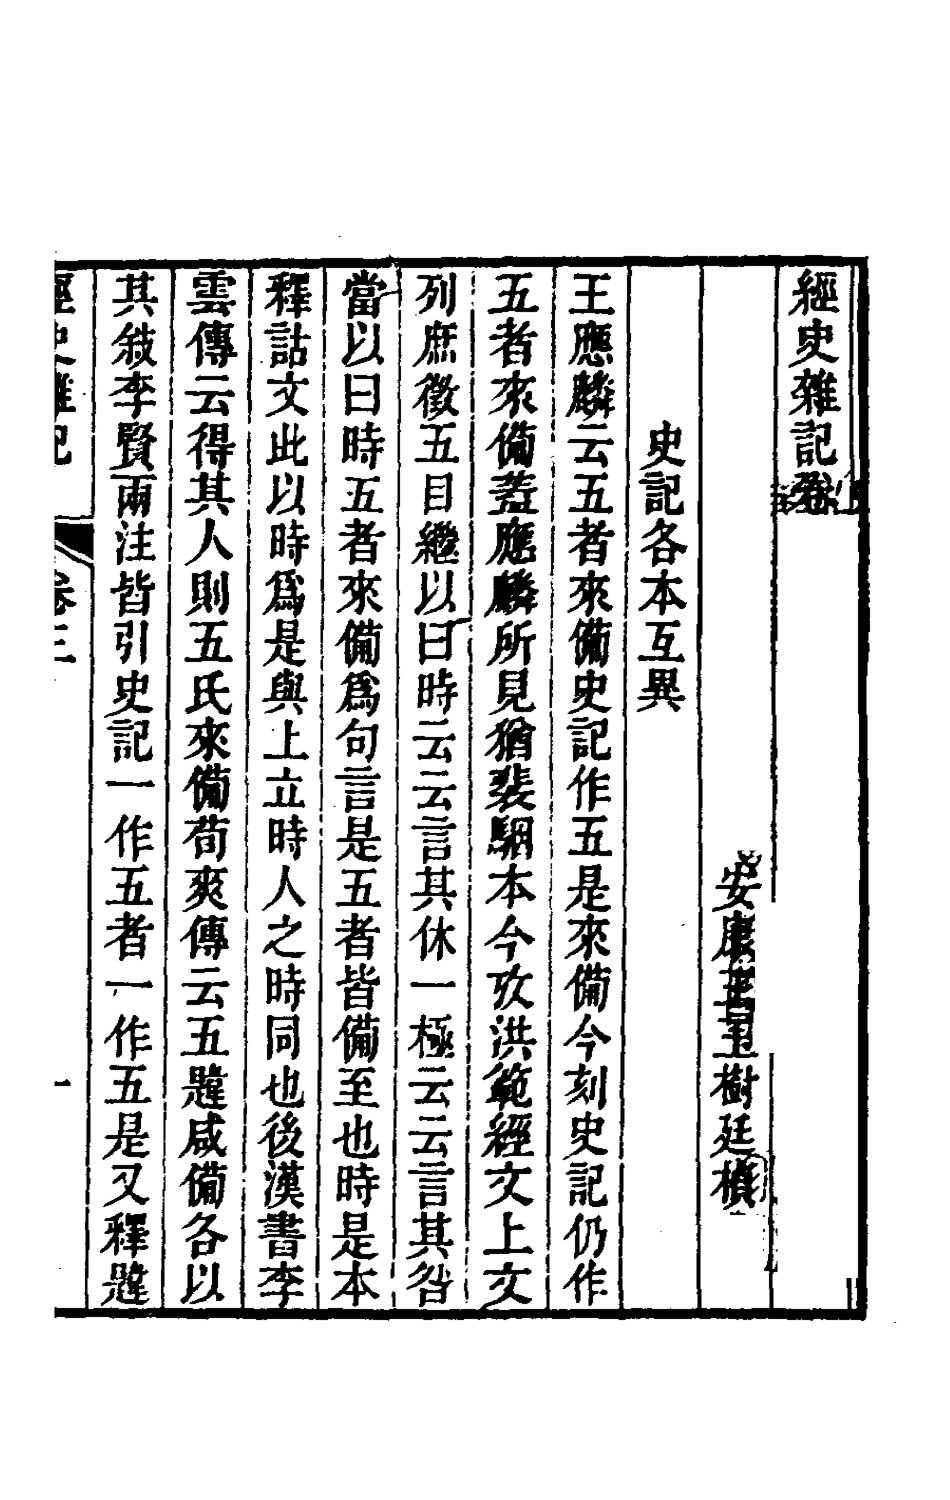 經史雜記卷
安康王玉樹廷楨
史記各本互異
王應麟云五者來備史記作五是來備今刻史記仍作
五者來備蓋應麟所見猶裴駰本今攷洪範經文上文
列庶徵五目繼以曰時云云言其休一極云云言其咎
當以曰時五者來備爲句言是五者皆備至也時是本
釋詁文此以時爲是與上立時人之時同也後漢書李
雲傳云得其人則五氏來備荀爽傳云五韙咸備各以
其敍李賢兩注皆引史記一作五者一作五是又釋韙
經史雜記
卷三
一